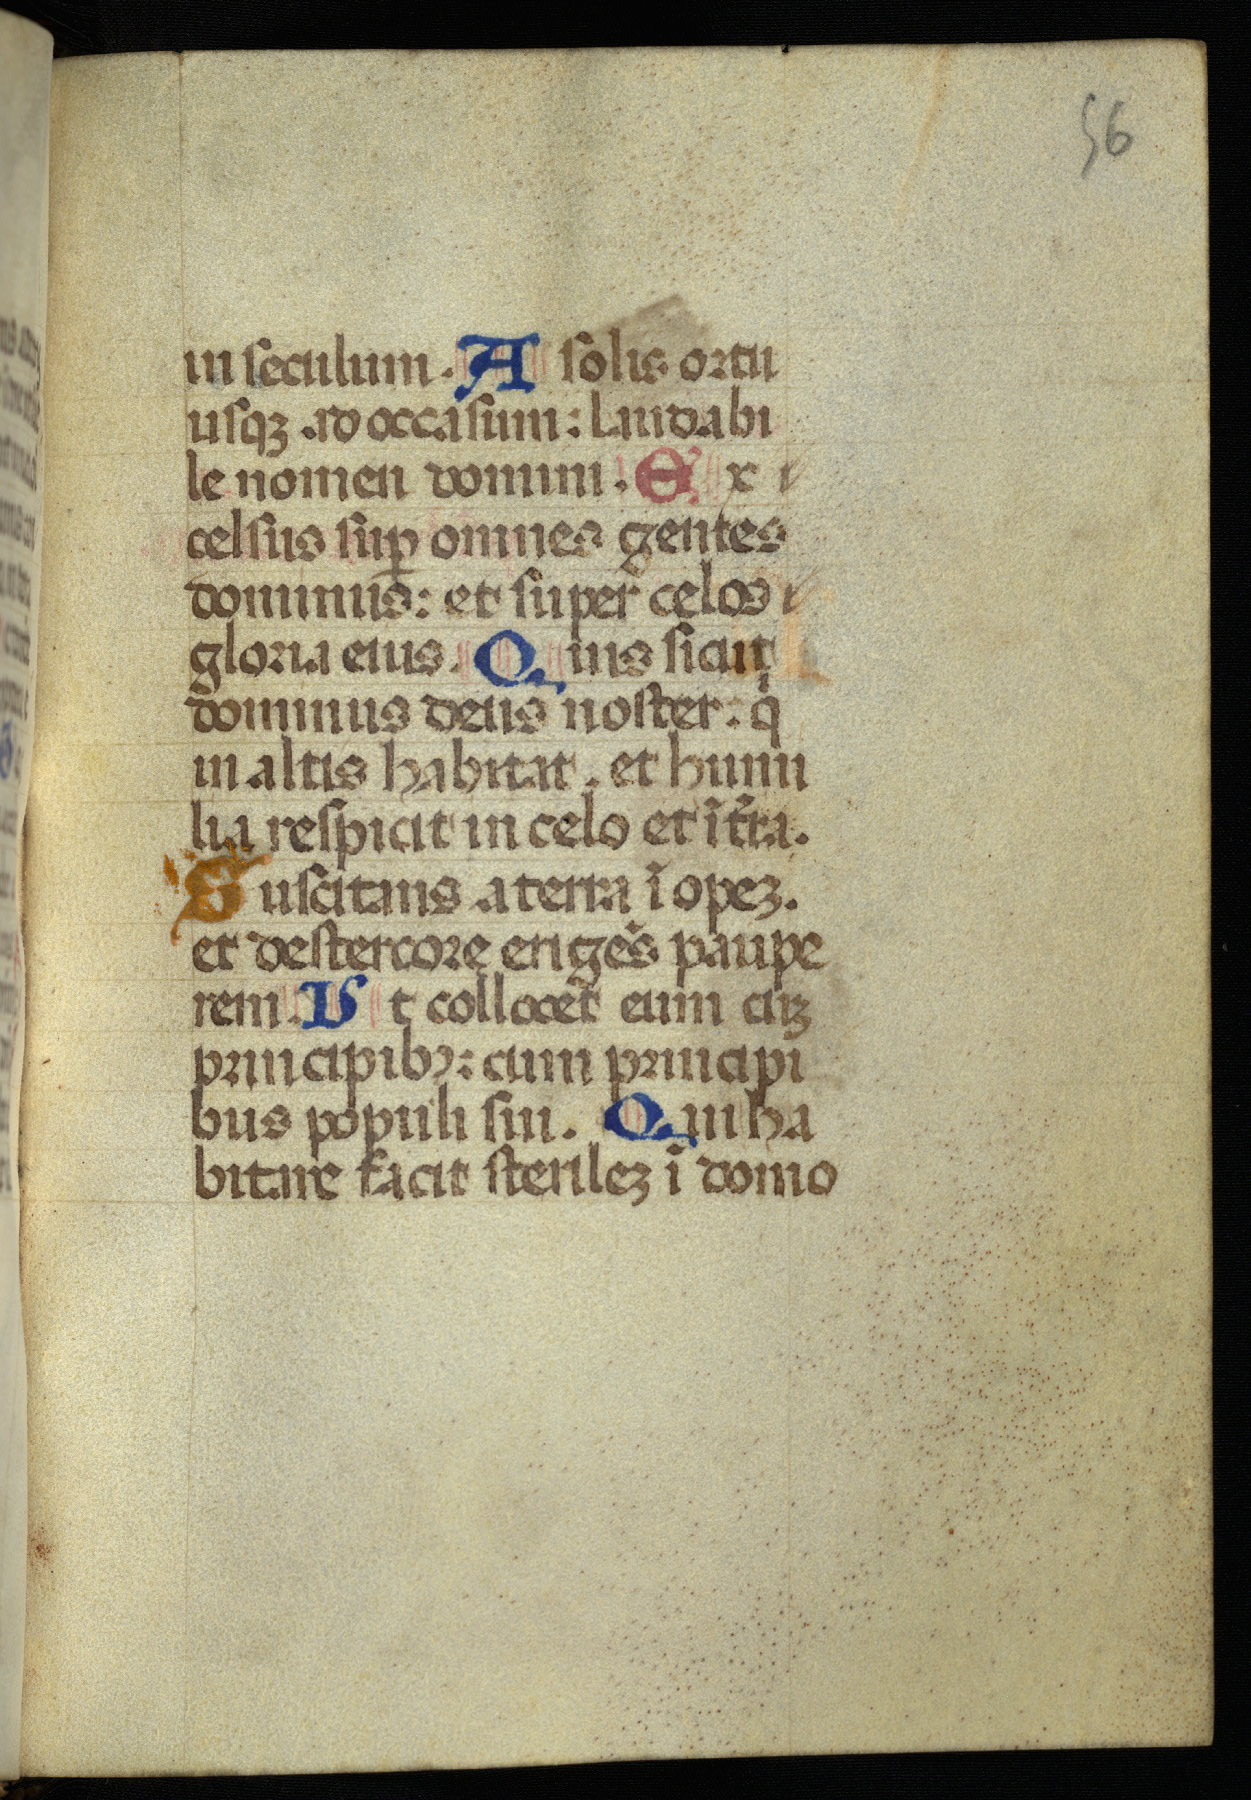 56
in seculum. A solis ortu
usqꝫ ad occasum: laudabi
le nomen domini. E x
celsus suꝑ omnes gentes
dominus: et super celos
gloria eius. Q uis sicut
dominus deus noster. q̇
in altis habitat. et humi
lia respicit in celo et ī t̄ra.
S uscitans a terra īopeꝫ.
et destercore erigēs paupe
rem. V t collocet eum cuꝫ
principibꝰ: cum principi
bus populi sui. Q ui ha
bitare facit sterileꝫ ī domo